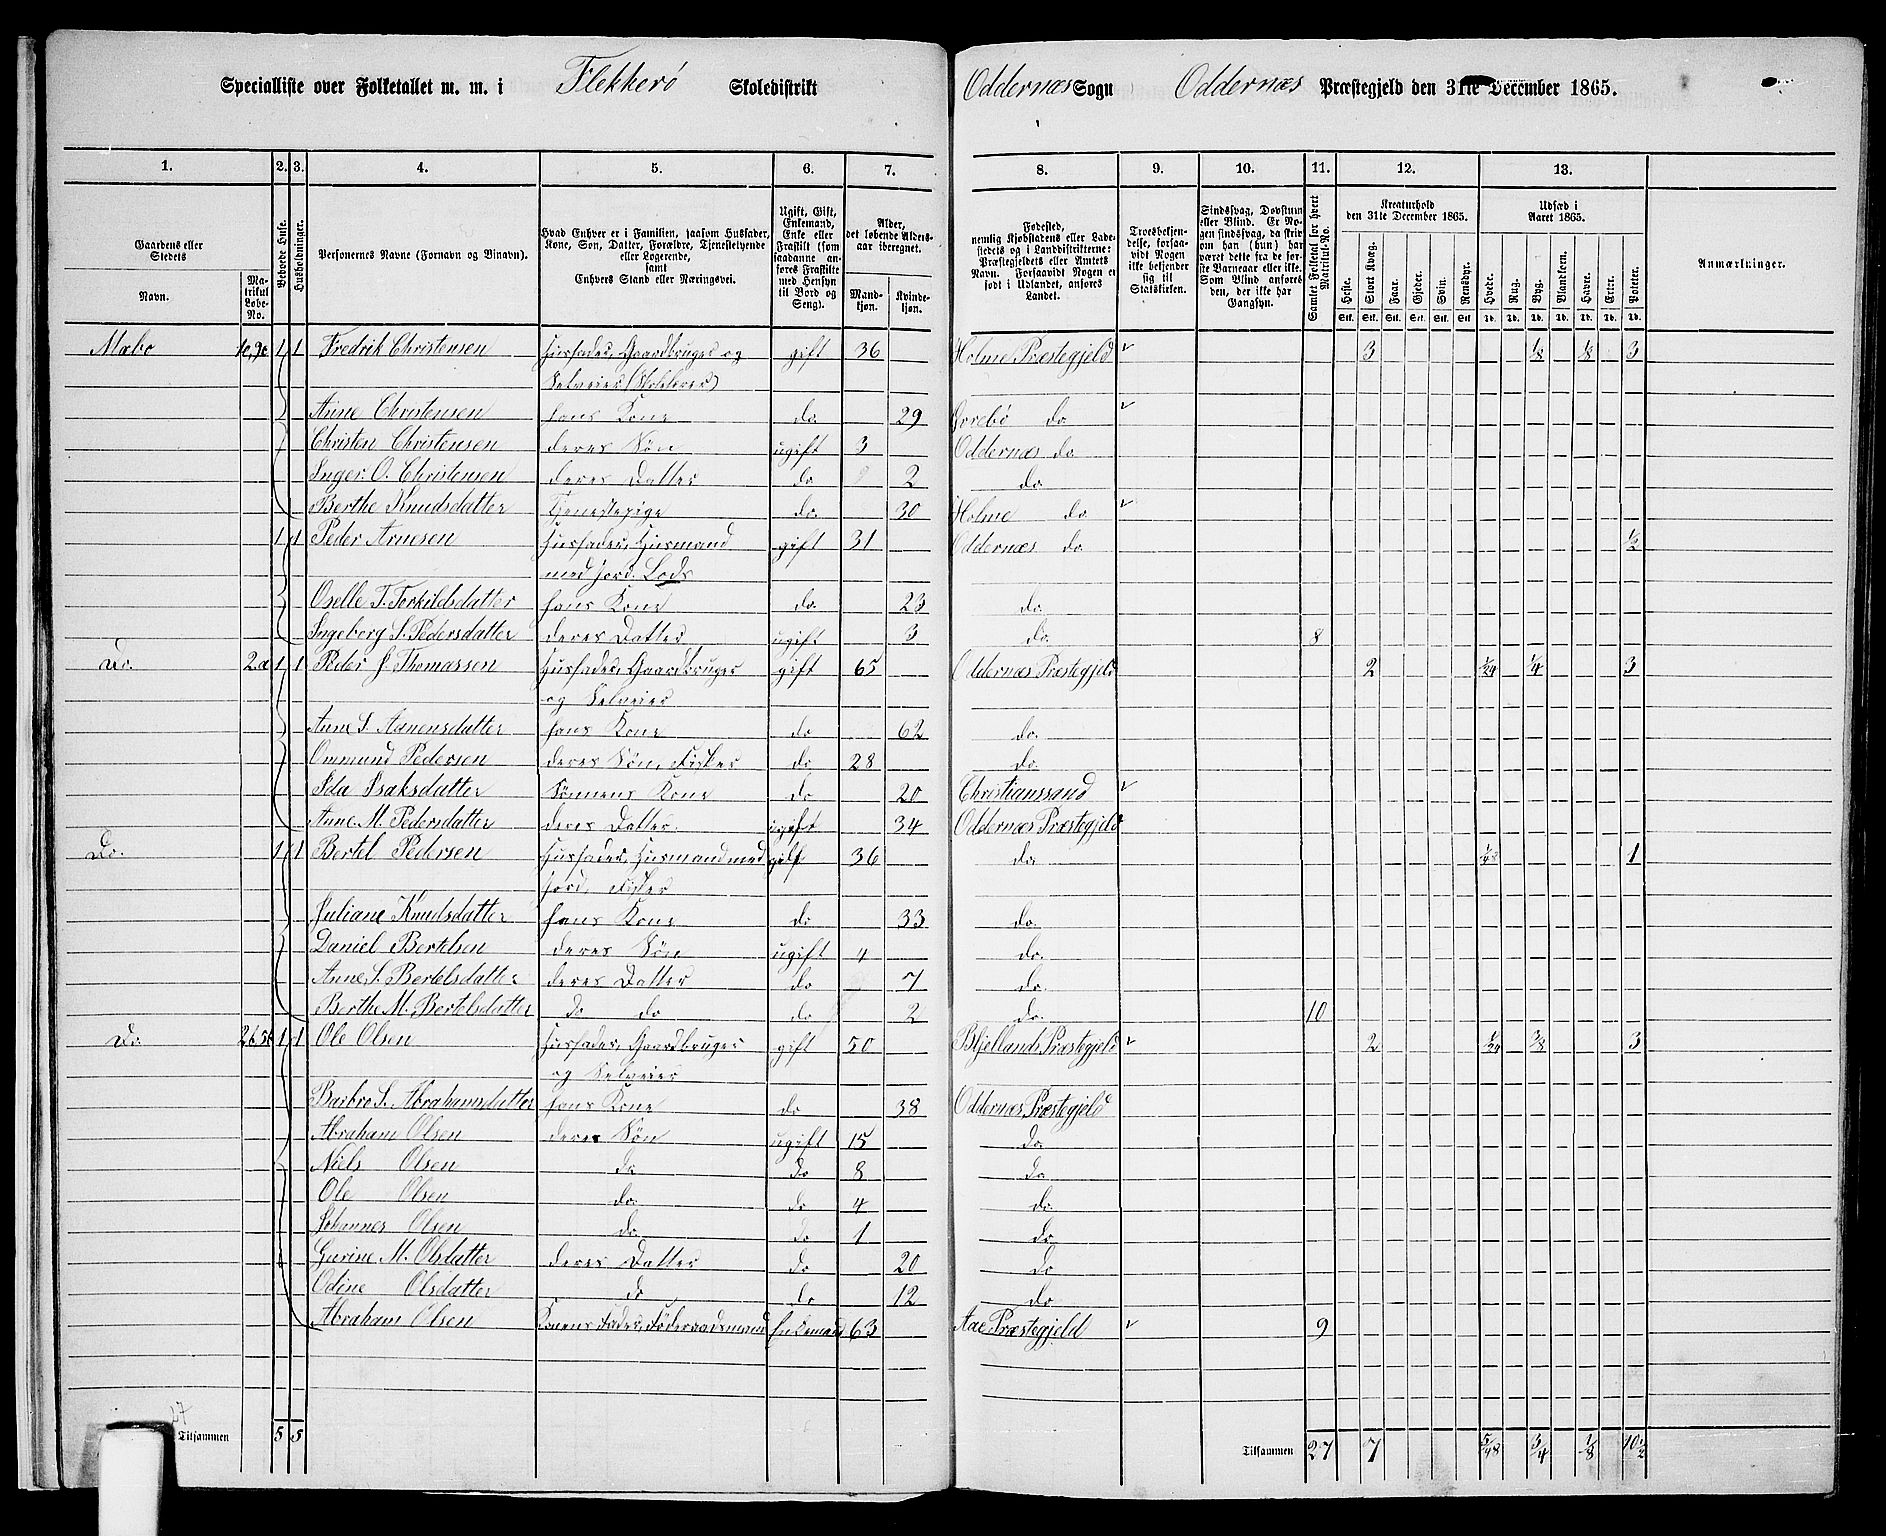 Specialliste over Folketallet m. m. i Flekkerö Skoledistrikt Oddernæs Sogn Oddernæs Præstegjeld den 31te December 1865.
1. 2. 3. 4. 5. 6. 7. 8. 9. 10. 11. 12. 13.
Gaardens eller Stedets Navn. Matrikul Løbe-No.
Beboede Huse.
Husholdninger.
Personernes Navne (Fornavn og Binavn).
Hvad Enhver er i Familien, saasom Husfader, Kone, Søn, Datter, Forældre, Tjenestetyende eller Logerende, samt Enhvers Stand eller Næringsvei.
Ugift, Gift, Enkemand, Enke eller Fraskilt (som saadanne anføres Fraskilte med Hensyn til Bord og Seng).
Alder, det løbende Alders-aar iberegnet. Mandkjøn. Kvindekjøn.
Fødested, nemlig Kjøbstadens eller Ladestedets og i Landdistrikterne: Præstegjeldets eller Amtets Navn. Forsaavidt Nogen er født i Udlandet, anføres Landet.
Troesbekjendelse, forsaavidt Nogen ikke bekjender sig til Statskirken.
Sindssvag, Døvstum eller Blind. Er Nogen sindssvag, da skrives om han (hun) har været dette fra de første Barneaar eller ikke. Som Blind anføres den, der ikke har Gangsyn.
Samlet Folketal for hvert Matrikul-No.
Kreaturhold den 31te December 1865.
Heste. Stort Kvæg. Faar. Gjeder. Svin. Rensdyr.
Udsæd i Aaret 1865.
Hvede. Rug. Byg. Blandkorn. Havre. Erter. Poteter.
Anmærkninger.
Mæbo 1 1 Fredrik Christensen Husfader, Gaardbruger og gift 36 Holme Præstegjeld 3 1/8 1/8 3
Selveier
Anne Christensen hans Kone do. 29 do
Christen Christensen deres Søn ugift 3 Oddernæs do
Inger O. Christensen deres Datter do 2 do
Berthe Knudsdatter Tjenestepige do. 30 Holme do
1 1 Peder Arnesen Husfader, Husmand gift 31 Oddernæs do 1/2
med Jord. Lods
Oselle T. Terkildsdatter hans Kone do. 23 do.
Ingeborg S. Pedersdatter deres Datter ugift 3 do. 8
Do. 2a 1 1 Peder J Thomassen Husfader, Gaardbruger gift 65 Oddernæs Præstegjeld 2 1/24 1/4 3
og Selveier
Anne S. Aanensdatter hans Kone do 62 do.
Ommund Pedersen deres Søn, Fisker do 28 do.
Ida Isaksdatter Sønnens Kone do 20 Christianssand
Anne M. Pedersdatter deres Datter. ugift 34 Oddernæs Præstegjeld
Do. 1 1 Bertel Pedersen Husfader, Husmand med gift 36 do. 1/48 1
Jord, Fisker
Juliane Knudsdatter hans Kone do 33 do.
Daniel Bertelsen deres Søn ugift 4 do.
Anne S. Bertelsdatter deres Datter do 7 do.
Berthe M. Bertelsdatter do do do 2 do. 10
Do. 1 1 Ole Olsen Husfader, Gaardbruger gift 50 Bjellands Præstegjeld 2 1/24 3/8 3
og Selveier
Barbro S. Abrahamsdatter hans Kone do 38 Oddernæs Præstegjeld
Abraham Olsen deres Søn ugift 15 do.
Niels Olsen do do 8 do
Ole Olsen do. do 4 do
Johannes Olsen do. do 1 do
Gurine M. Olsdatter deres Datter do 20 do
Odine Olsdatter do do 12 do
Abraham Olsen Konens Fader, Föderaadsmand Enkemand 63 Aae Præstegjeld 9
27
Tilsammen 5 5 Tilsammen 27 7 5/48 3/4 1/8 10 1/2